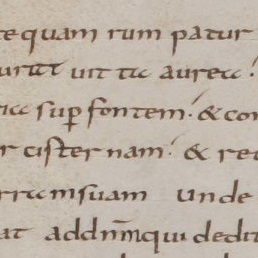 te quam rum patur
urrat uit ta aurea
ria sup̄ fontem. & con
r cisternam. & re
erram suam unde
at ad dn̄m qui dedit